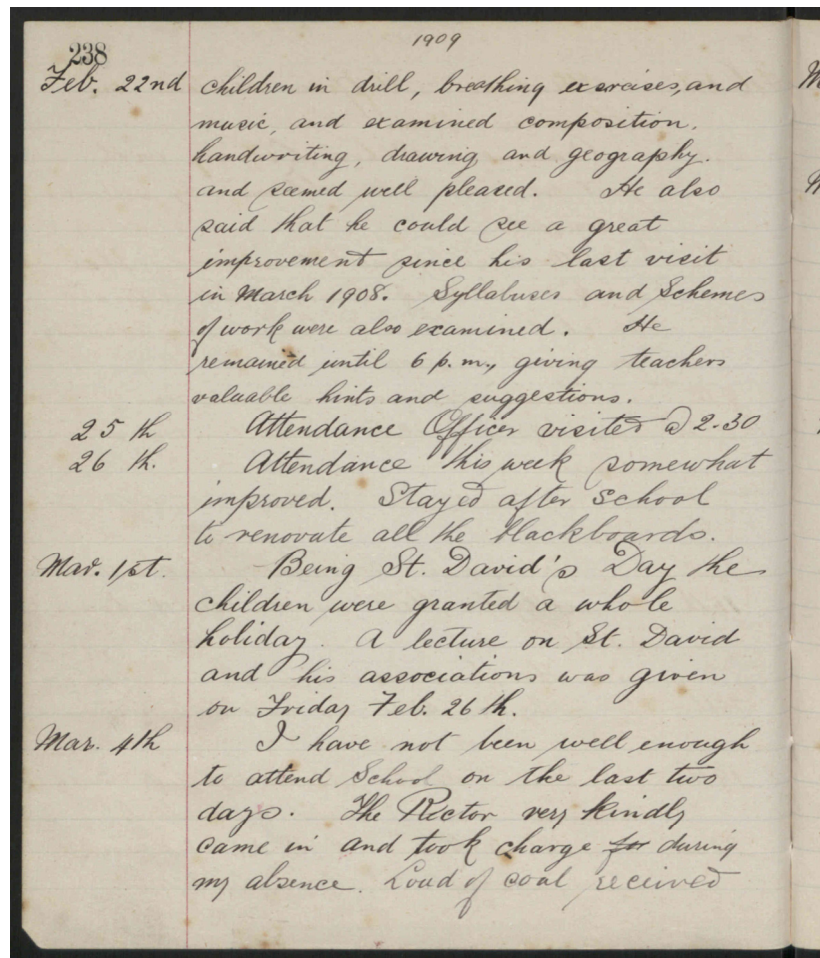 1909
238
Feb. 22nd children in drill, breathing exercises, and
music, and examined composition.
handwriting, drawing, and geography.
and seemed well pleased. He also
said that he could see a great
improvement since his last visit
in March 1908. Syllabuses and Schemes
of work were also examined. He
remained until 6 p.m., giving teachers
valuable hints and suggestions.
25th Attendance Officer visited @ 2.30
26 th. Attendance this week somewhat
improved. Stayed after School
to renovate all the blackboards.
Mar. 1st. Being St. David's Day the
children were granted a whole
holiday. A lecture on St. David
and his associations was given
on Friday Feb. 26th.
Mar. 4th I have not been well enough
to attend School on the last two
days. The Rector very kindly
came in and took charge for during
my absence. Load of coal received